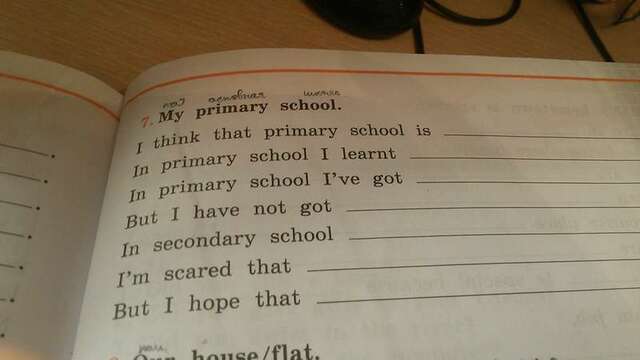 7. My primary school.
I think that primary school is
In primary school I learnt
In primary school I've got
But I have not got
In secondary school
I'm scared that
But I hope that
Our house/flat.